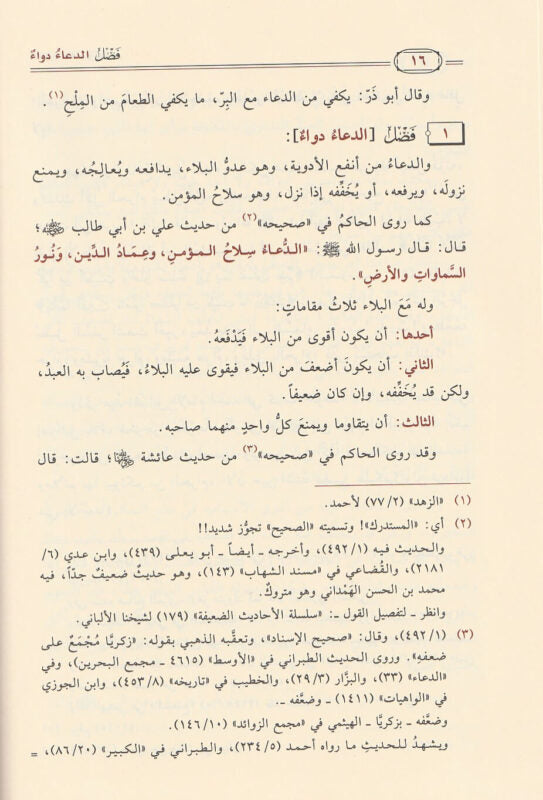 ١٦
فَصْلٌ الدعاءُ دواءٌ
وقال أبو ذَرّ: يكفي من الدعاء مع البِرّ، ما يكفي الطعامَ من المِلْحِ(١).
١ فَصْلٌ [الدعاء دواءٌ]:
والدعاءُ من أنفعِ الأدوية، وهو عدوُّ البلاء، يدافعه ويُعالِجُه، ويمنع
نزولَه، ويرفعه، أو يُخَفِّفه إذا نزل، وهو سلاحُ المؤمن.
كما روى الحاكمُ في «صحيحه»(٢) من حديث علي بن أبي طالب رضي الله عنه؛
قال: قال رسول الله ﷺ: «الدُّعاءُ سِلاحُ المؤمنِ، وعِمَادُ الدِّين، وَنُورُ
السَّماواتِ والأرضِ».
وله مَعَ البلاء ثلاثُ مقاماتٍ:
أحدها: أن يكون أقوى من البلاء فَيَدْفَعَهُ.
الثاني: أن يكونَ أضعفَ من البلاء فيقوى عليه البلاءُ، فَيُصاب به العبدُ،
ولكن قد يُخَفِّفه، وإن كان ضعيفاً.
الثالث: أن يتقاوما ويمنعَ كلُّ واحدٍ منهما صاحبه.
وقد روى الحاكم في «صحيحه»(٣) من حديث عائشة رضي الله عنها؛ قالت: قال
(١) «الزهد» (٢/٧٧) لأحمد.
(٢) أي: «المستدرك»! وتسميته «الصحيح» تجوُّز شديد!!
والحديث فيه (١/٤٩٢)، وأخرجه ـ أيضاً ـ أبو يعلى (٤٣٩)، وابن عدي (٦/
٢١٨١)، والقُضاعي في «مسند الشهاب» (١٤٣)، وهو حديثٌ ضعيفٌ جدّاً، فيه
محمد بن الحسن الهَمْداني وهو متروكٌ.
وانظر ـ لتفصيل القول ـ: «سلسلة الأحاديث الضعيفة» (١٧٩) لشيخنا الألباني.
(٣) (١/٤٩٢)، وقال: «صحيح الإسناد»، وتعقّبه الذهبي بقوله: «زكريَّا مُجْمَعٌ على
ضعفِهِ». وروى الحديث الطبراني في «الأوسط» (٤٦١٥ ـ مجمع البحرين)، وفي
«الدعاء» (٣٣)، والبزَّار (٣/٢٩)، والخطيب في «تاريخه» (٨/٤٥٣)، وابن الجوزي
في «الواهيات» (١٤١١) ـ وضعَّفه ـ.
وضعَّفه ـ بزكريَّا ـ الهيثمي في «مجمع الزوائد» (١٠/١٤٦).
ويشهدُ للحديثِ ما رواه أحمد (٥/٢٣٤)، والطبراني في «الكبير» (٢٠/٨٦)، =